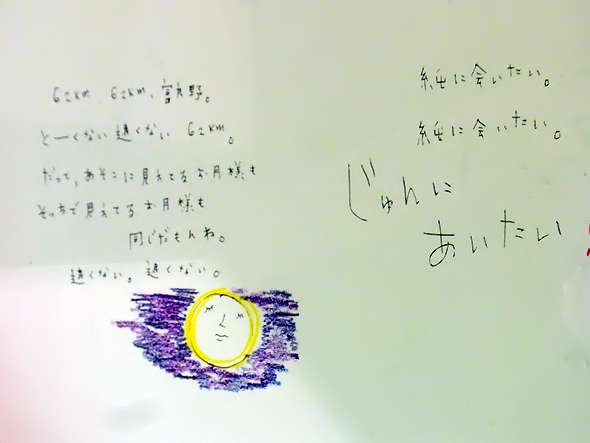 62km、62km、富良野。
とーくない 遠くない 62km。
だって、あそこに見えてるお月様も
そっちで見えてるお月様も
同じだもんね。
遠くない。遠くない。
純に会いたい。
純に会いたい。
じゅんに
あいたい